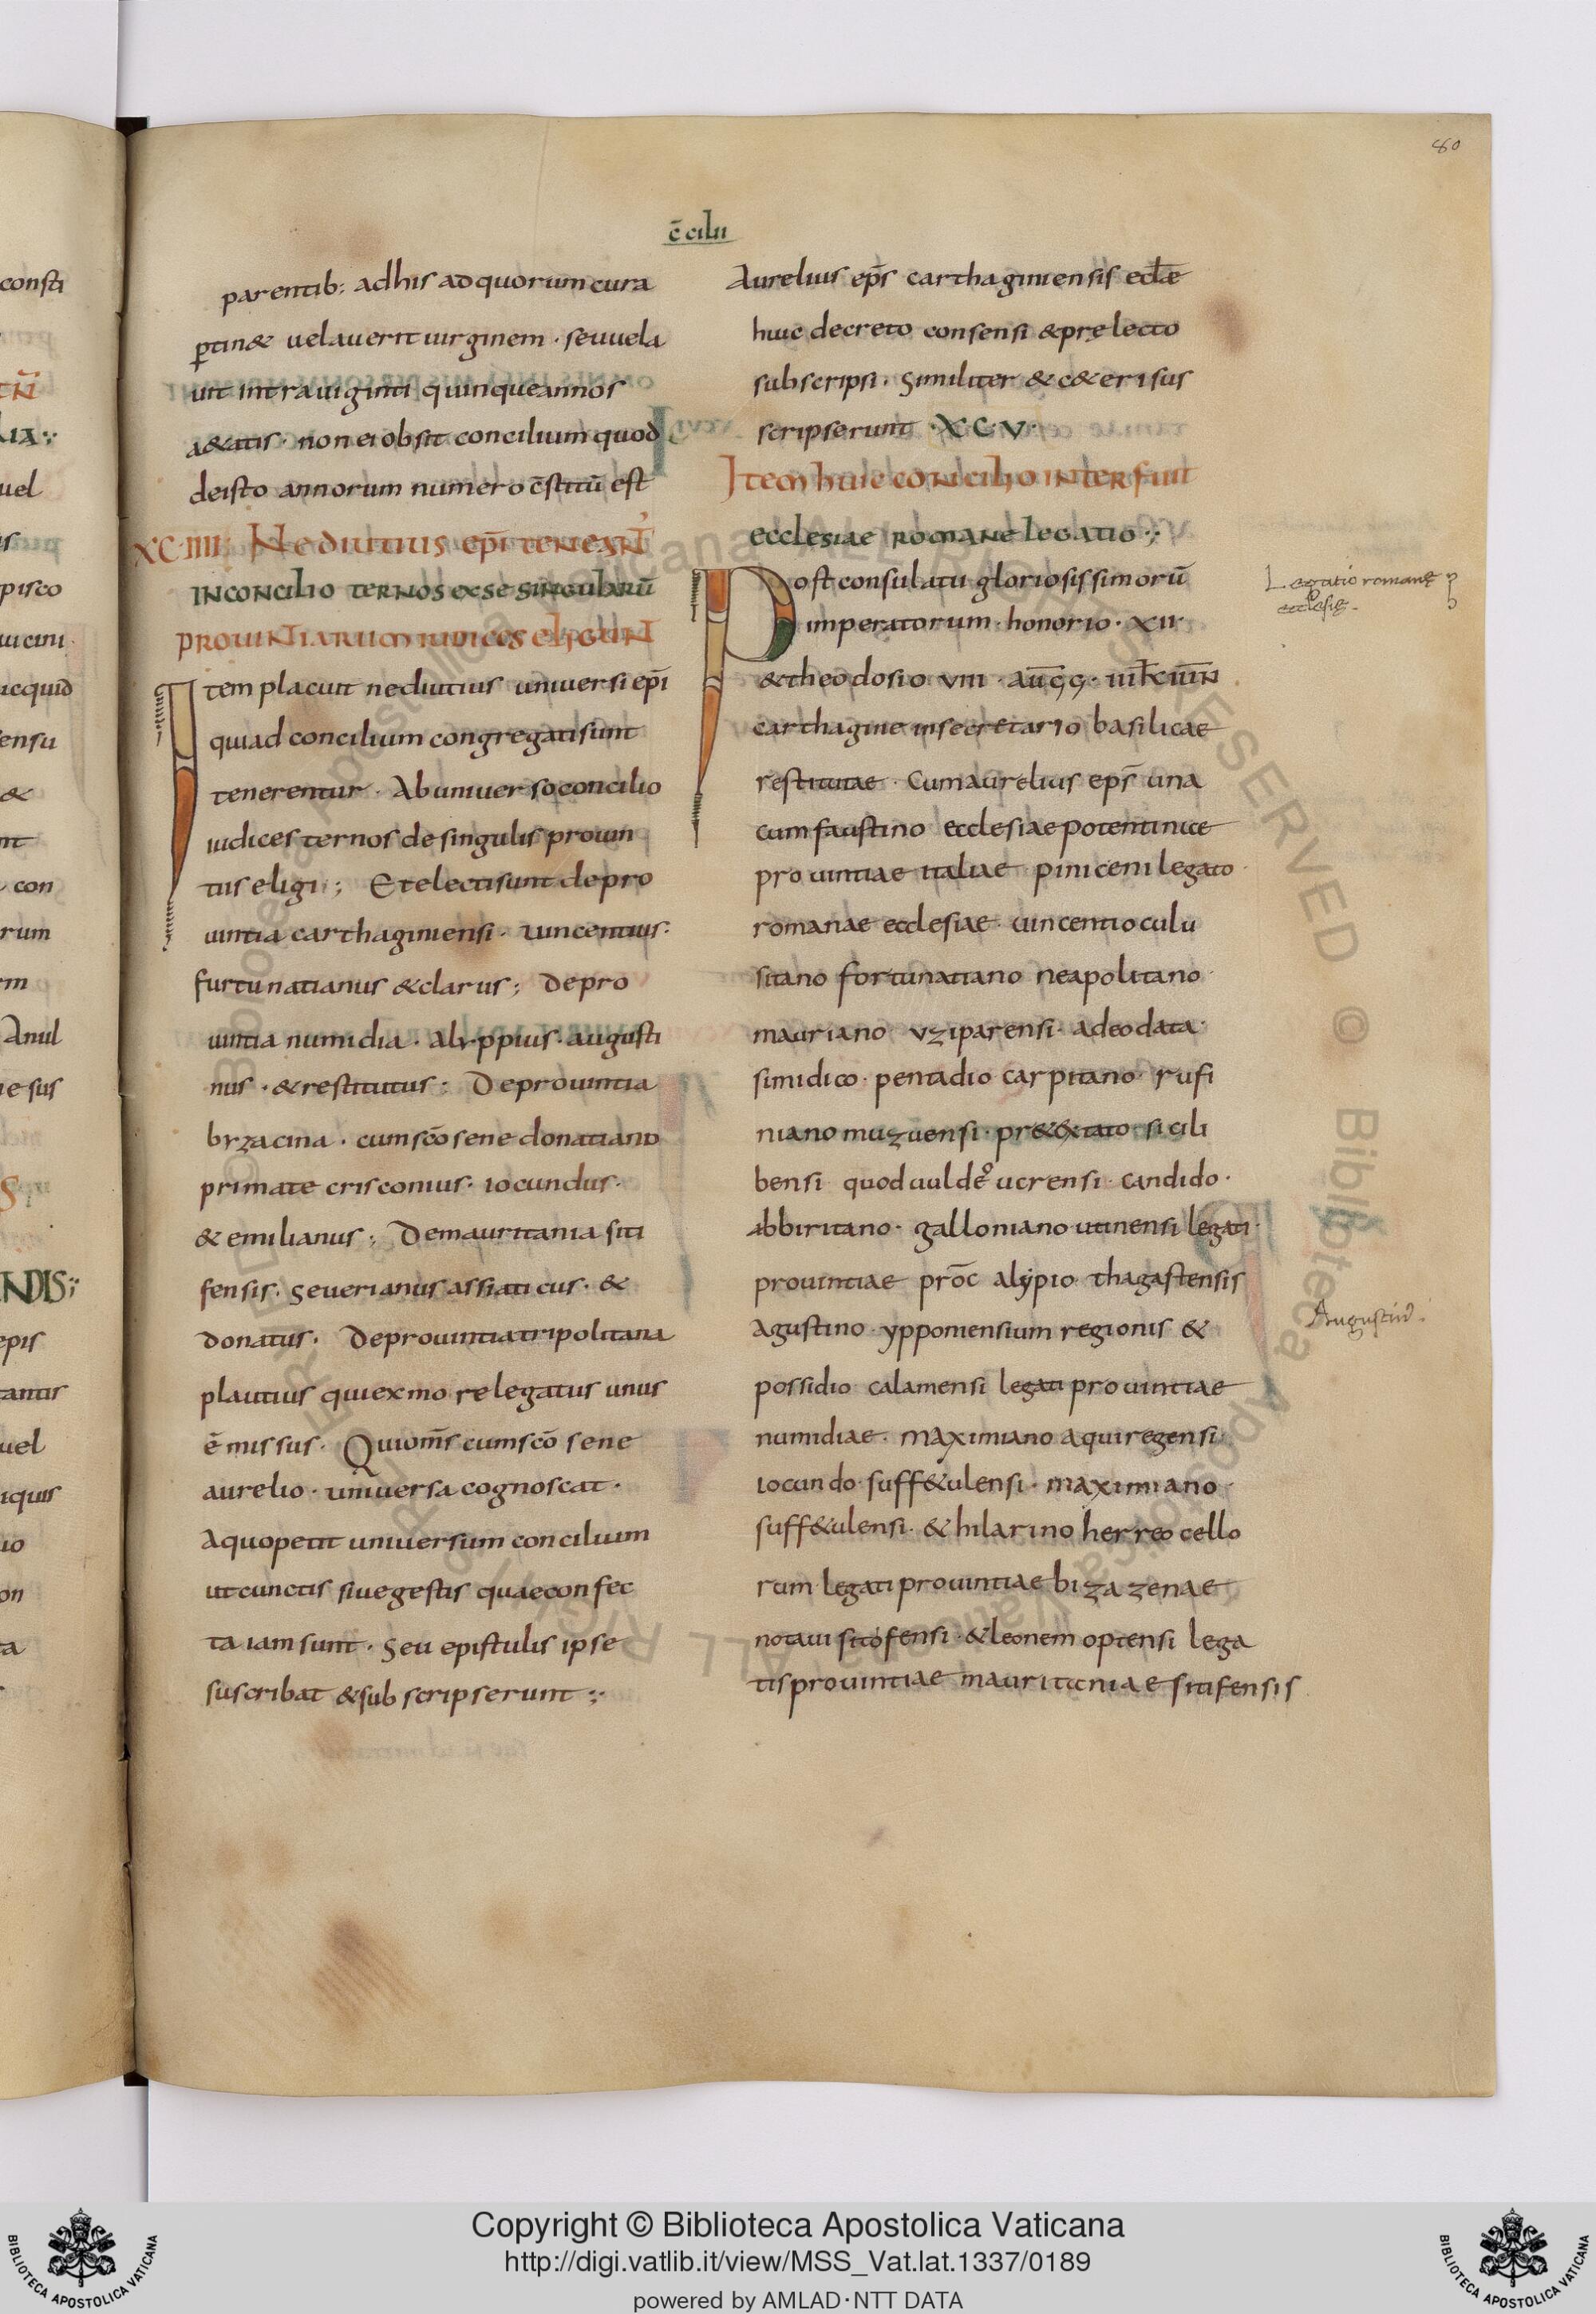 80
c̄ cilii
parentib; adhis adquorum cura
ꝑtin& uelauerit uirginem · seu uela
uit intra uiginti quinque annos
a&atis · non ei obsit concilium quod
deisto annorum numero c̄stitū est
XC·IIII· Ne diutius epī tenean̄t
in concilio ternos exse singularū
prouintiarum iudices eligunt
Item placuit nediutius uniuersi epī
quiad concilium congregati sunt
tenerentur · Ab uniuerso concilio
iudices ternos de singulis prouin
tiis eligi ; Et electi sunt de pro
uintia carthaginiensi · uincentius ·
furtunatianus & clarus ; De pro
uintia numidia · alyppius · augusti
nus · & restitutus : De prouintia
byzacina · cum sc̄o sene donatiano
primate crisconius · iocundus ·
& emilianus ; De mauritania siti
fensis · seuerianus assiaticus · &
donatus · De prouintia tripolitana
plautius qui ex mo re legatus unus
ē missus · Qui om̄s cum sc̄o sene
aurelio · uniuersa cognoscat ·
A quo petit uniuersum concilium
ut cunctis siue gestis quae confec
ta iam sunt · seu epistulis ipse
suscribat & sub scripserunt ;
Aurelius ep̄s carthaginiensis eclae
huic decreto consensi & prelecto
subscripsi · similiter & c&eri sus
scripserunt · XC·V·
Item huic concilio interfuit
ecclesiae romane legatio ;
Post consulatu gloriosissimorū
imperatorum · honorio · XII·
& theodosio VIII · aūgg · iiik iuīn
carthagine in secretario basilicae
restitutae · Cum aurelius ep̄s una
cum faustino ecclesiae potentinice
prouintiae italiae piniceni legato ·
romanae ecclesiae · uincentio culu
sitano fortunatiano neapolitano ·
mauriano uziparensi · adeodata ·
simidico · pentadio carpitano · rufi
niano muzuensi · pr&&xtato · sicili
bensi quoduuldeo ucrensi · candido ·
abbiritano · galloniano utinensi legati ·
prouintiae prōc alypio thagastensis
agustino · ypponiensium regionis &
possidio calamensi legati prouintiae
numidiae · maximiano aquiregensi
iocundo · suff&ulensi · maximiano ·
suff&ulensi · & hilarino herreo cello
rum legati prouintiae bizazenae
notaui sitofensi · & leonem optensi lega
tis prouintiae mauritaniae sitifensis
Legatio romanę
ecclesię
Augustin᷒
Copyright © Biblioteca Apostolica Vaticana
http://digi.vatlib.it/view/MSS_Vat.lat.1337/0189
powered by AMLAD·NTT DATA
BIBLIOTECA APOSTOLICA VATICANA
BIBLIOTECA APOSTOLICA VATICANA